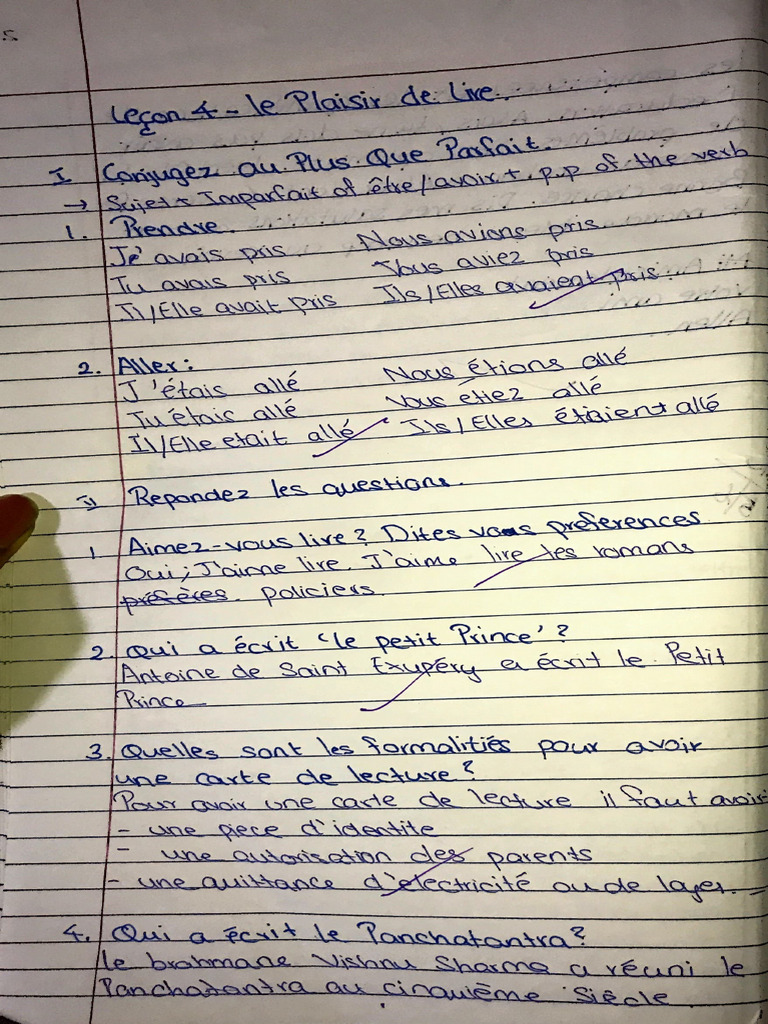 Leçon 4 - le Plaisir de Lire.
I Conjugez au Plus Que Parfait.
→ Sujet + Imparfait of être/avoir + p.p of the verb
1. Prendre.
Je avais pris Nous avions pris
Tu avais pris Vous aviez pris
Il/Elle avait pris Ils/Elles avaient pris
2. Aller:
J'étais allé Nous étions allé
Tu étais allé Vous etiez allé
Il/Elle etait allé Ils/Elles étaient allé
II Repondez les questions.
1. Aimez-vous lire? Dites vos preferences
Oui, J'aime lire. J'aime lire les romans
préfères policiers.
2. Qui a écrit 'le petit Prince'?
Antoine de Saint Exupéry a écrit le Petit
Prince
3. Quelles sont les formalitiés pour avoir
une carte de lecture?
Pour avoir une carte de lecture il faut avoir
- une piece d'identite
- une autorisation des parents
- une quittance d'électricité ou de loyer.
4. Qui a écrit le Panchatantra?
Le brahmane Vishnu Sharma a réuni le
Panchatantra au cinquième Siècle.